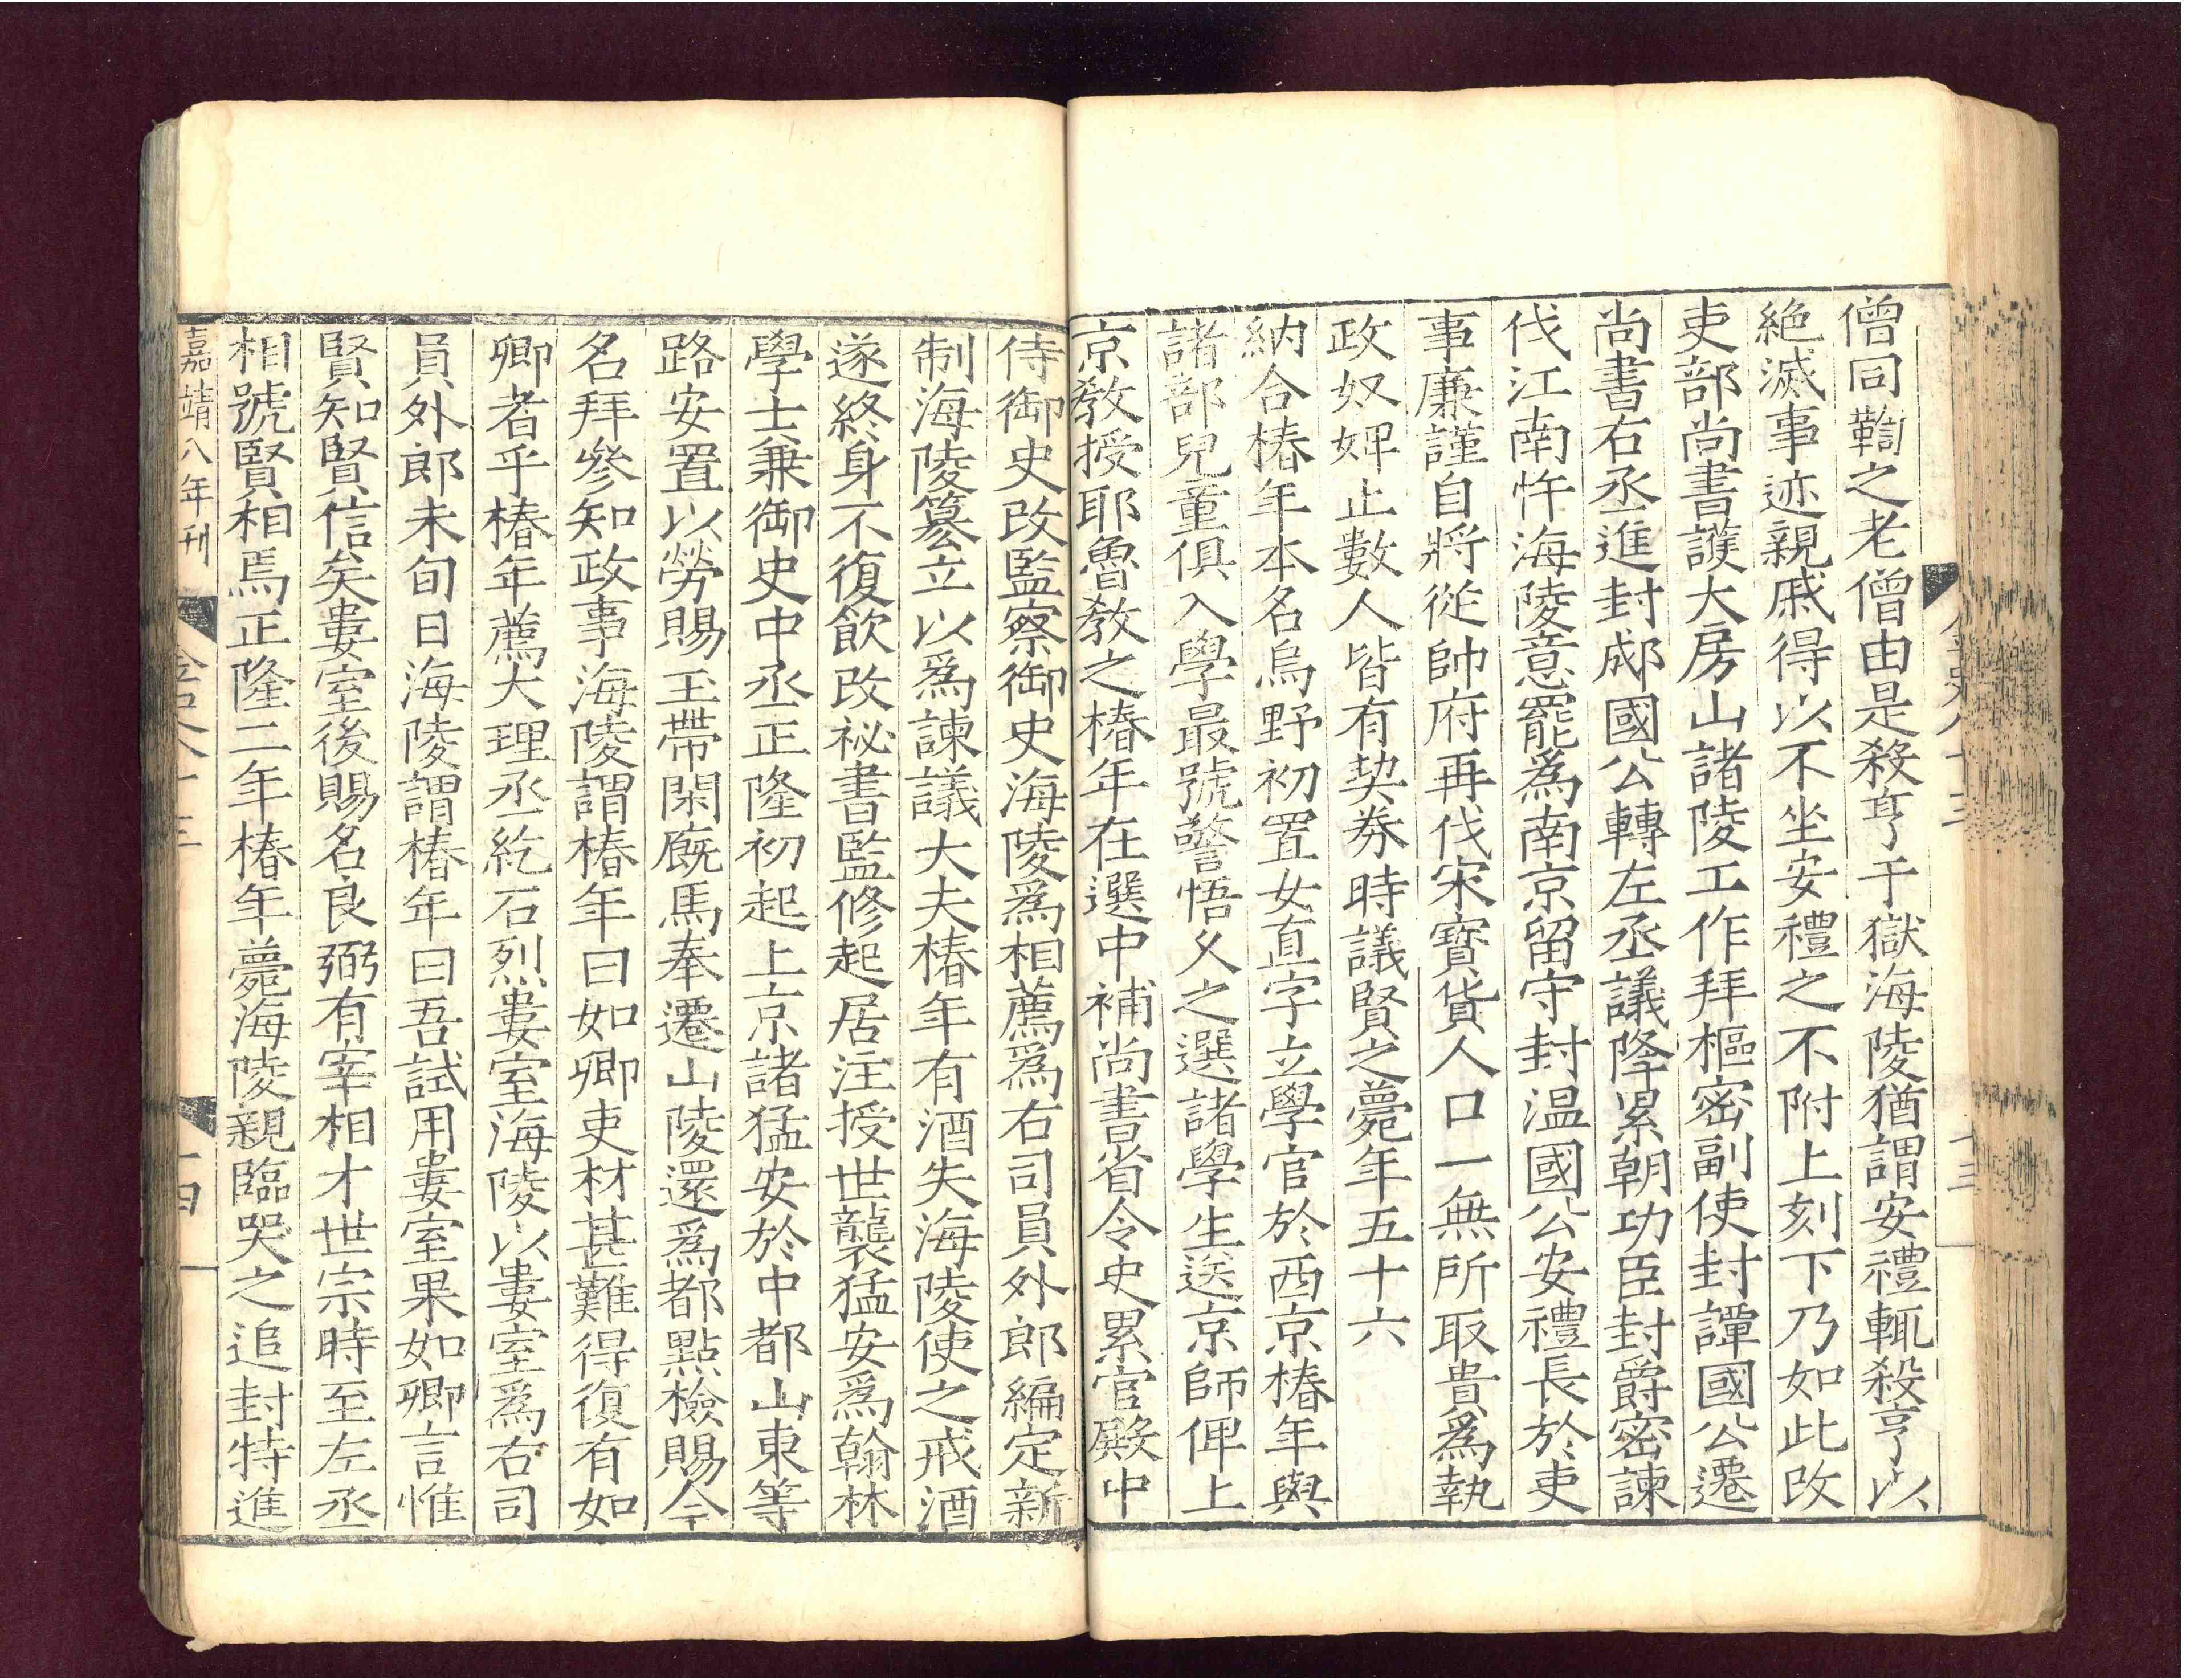 僧同鞫之老僧由是殺亨于獄海陵猶謂安禮輒殺亨以
絶滅事迹親戚得以不坐安禮之不附上刻下乃如此改
吏部尚書護大房山諸陵工作拜樞密副使封譚國公遷
尚書右丞進封郕國公轉左丞議降累朝功臣封爵密諫
伐江南忤海陵意罷爲南京留守封温國公安禮長於吏
事廉謹自將從帥府再伐宋寶貨人口一無所取貴爲執
政奴婢止數人皆有契券時議賢之薨年五十六
納合椿年本名烏野初置女直字立學官於西京椿年與
諸部兒童俱入學最號警悟久之選諸學生送京師俾上
京教授耶魯教之椿年在選中補尚書省令史累官殿中
侍御史改監察御史海陵爲相薦爲右司員外郎編定新
制海陵簒立以爲諫議大夫椿年有酒失海陵使之戒酒
遂終身不復飲改祕書監修起居注授世襲猛安爲翰林
學士兼御史中丞正隆初起上京諸猛安於中都山東等
路安置以勞賜玉帶閑廐馬奉遷山陵還爲都點檢賜今
名拜參知政事海陵謂椿年曰如卿吏材甚難得復有如
卿者乎椿年薦大理丞紇石烈婁室海陵以婁室爲右司
員外郎未旬日海陵謂椿年曰吾試用婁室果如卿言惟
賢知賢信矣婁室後賜名良弼有宰相才世宗時至左丞
相號賢相焉正隆二年椿年薨海陵親臨哭之追封特進
嘉靖八年刊
十四